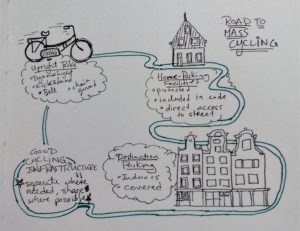 ROAD TO
MASS
CYCLING
Upright Bike
• Kickstand
• Bell
guard
Home-Parking
Facilities
• protected
• included in code
• direct access
to street
GOOD
CYCLING
INFRASTRUCTURE
separate where
needed, share
where possible
Destination
Parking
• Indoors
• Covered